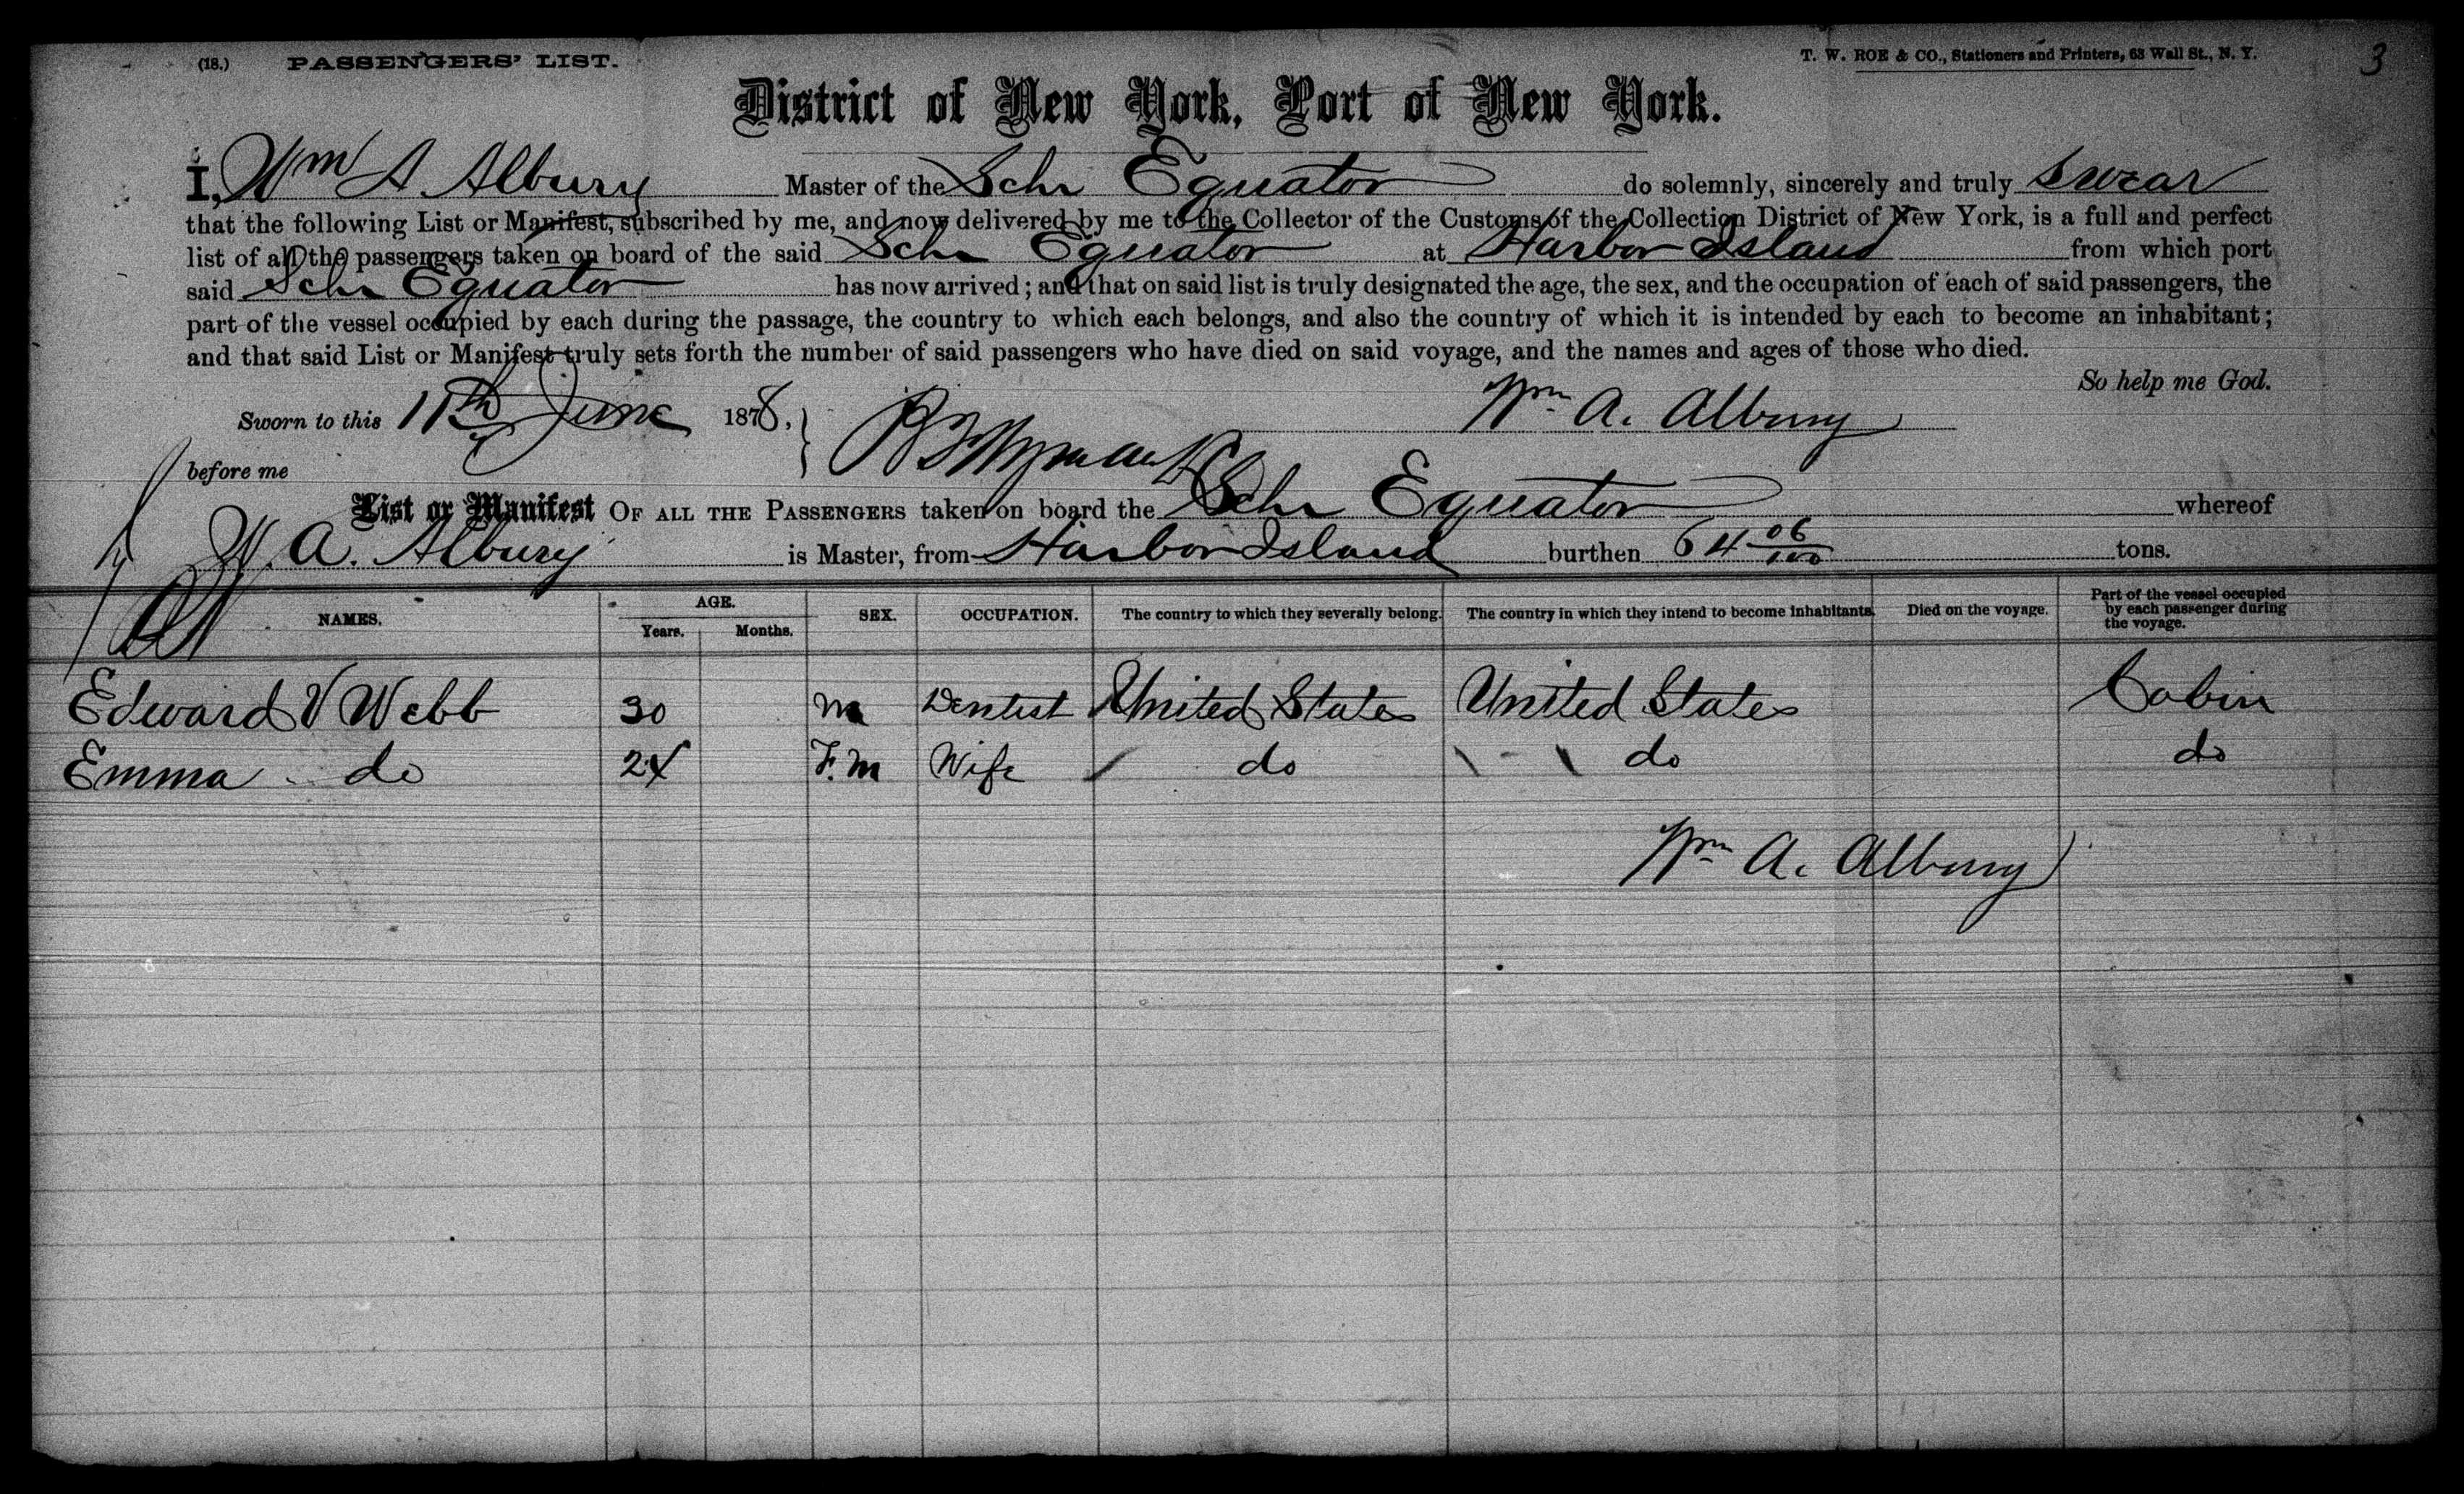 (18.) PASSENGERS' LIST. T. W. ROE & CO., Stationers and Printers, 63 Wall St., N. Y. 3
District of New York, Port of New York.
I, Wm A Albury Master of the Schr Equator do solemnly, sincerely and truly swear
that the following List or Manifest, subscribed by me, and now delivered by me to the Collector of the Customs of the Collection District of New York, is a full and perfect
list of all the passengers taken on board of the said Schr Equator at Harbor Island from which port
said Schr Equator has now arrived; and that on said list is truly designated the age, the sex, and the occupation of each of said passengers, the
part of the vessel occupied by each during the passage, the country to which each belongs, and also the country of which it is intended by each to become an inhabitant;
and that said List or Manifest truly sets forth the number of said passengers who have died on said voyage, and the names and ages of those who died.
So help me God.
Sworn to this 11th June 1878, Wm A. Albury
before me
List or Manifest OF ALL THE PASSENGERS taken on board the Schr Equator whereof
W. A. Albury is Master, from Harbor Island burthen 64 06/100 tons.
NAMES. AGE. Years. Months. SEX. OCCUPATION. The country to which they severally belong. The country in which they intend to become inhabitants. Died on the voyage. Part of the vessel occupied by each passenger during the voyage.
Edward V Webb 30 m Dentist United States United States Cabin
Emma do 24 F.m Wife do do do
Wm A. Albury